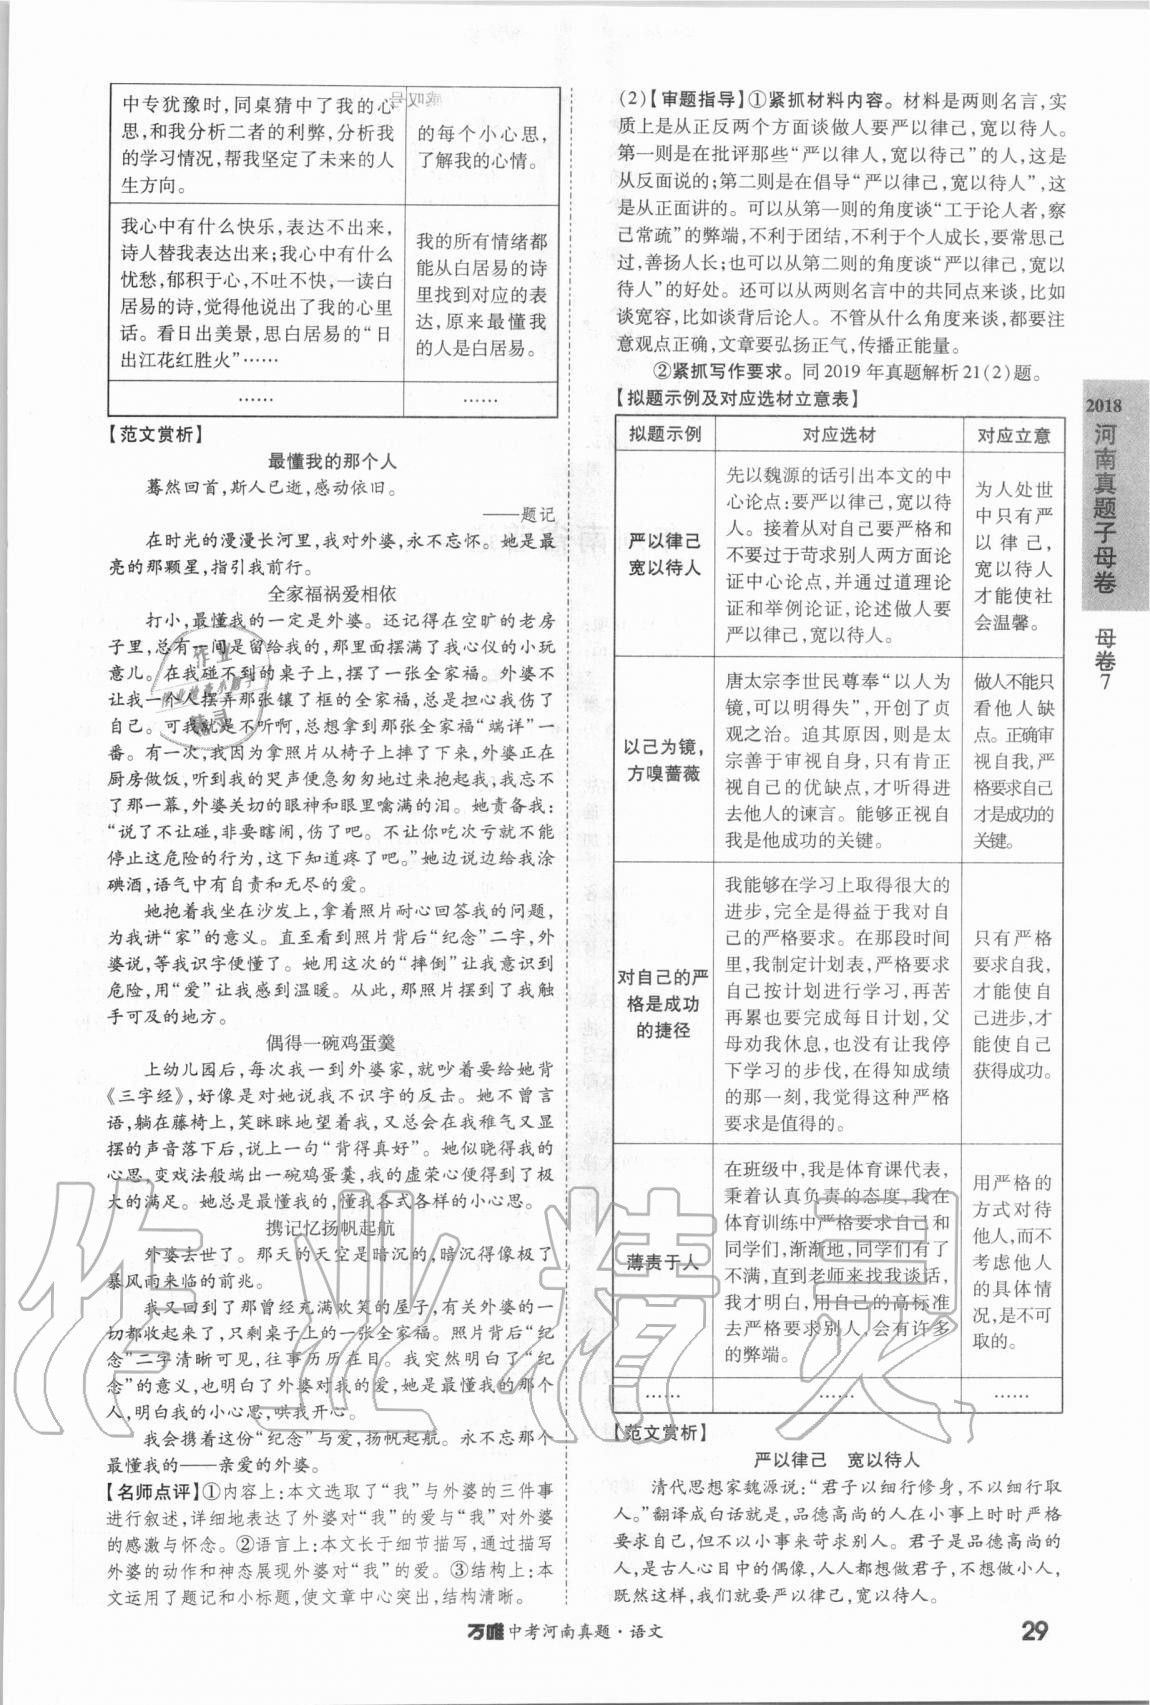 中专犹豫时,同桌猜中了我的心
思,和我分析二者的利弊,分析我
的学习情况,帮我坚定了未来的人
生方向。
的每个小心思,
了解我的心情。
我心中有什么快乐,表达不出来,
诗人替我表达出来;我心中有什么
忧愁,郁积于心,不吐不快,一读白
居易的诗,觉得他说出了我的心里
话。看日出美景,思白居易的“日
出江花红胜火”……
我的所有情绪都
能从白居易的诗
里找到对应的表
达,原来最懂我
的人是白居易。
……
……
【范文赏析】
最懂我的那个人
蓦然回首,斯人已逝,感动依旧。
——题记
在时光的漫漫长河里,我对外婆,永不忘怀。她是最
亮的那颗星,指引我前行。
全家福祸爱相依
打小,最懂我的一定是外婆。还记得在空旷的老房
子里,总有一间是留给我的,那里面摆满了我心仪的小玩
意儿。在我碰不到的桌子上,摆了一张全家福。外婆不
让我一个人摆弄那张镶了框的全家福,总是担心我伤了
自己。可我就是不听啊,总想拿到那张全家福“端详”一
番。有一次,我因为拿照片从椅子上摔了下来,外婆正在
厨房做饭,听到我的哭声便急匆匆地过来抱起我,我忘不
了那一幕,外婆关切的眼神和眼里噙满的泪。她责备我:
“说了不让碰,非要瞎闹,伤了吧。不让你吃次亏就不能
停止这危险的行为,这下知道疼了吧。”她边说边给我涂
碘酒,语气中有自责和无尽的爱。
她抱着我坐在沙发上,拿着照片耐心回答我的问题,
为我讲“家”的意义。直至看到照片背后“纪念”二字,外
婆说,等我识字便懂了。她用这次的“摔倒”让我意识到
危险,用“爱”让我感到温暖。从此,那照片摆到了我触
手可及的地方。
偶得一碗鸡蛋羹
上幼儿园后,每次我一到外婆家,就吵着要给她背
《三字经》,好像是对她说我不识字的反击。她不曾言
语,躺在藤椅上,笑眯眯地望着我,又总会在我稚气又显
摆的声音落下后,说上一句“背得真好”。她似晓得我的
心思,变戏法般端出一碗鸡蛋羹,我的虚荣心便得到了极
大的满足。她总是最懂我的,懂我各式各样的小心思。
携记忆扬帆起航
外婆去世了。那天的天空是暗沉的,暗沉得像极了
暴风雨来临的前兆。
我又回到了那曾经充满欢笑的屋子,有关外婆的一
切都收起来了,只剩桌子上的一张全家福。照片背后“纪
念”二字清晰可见,往事历历在目。我突然明白了“纪
念”的意义,也明白了外婆对我的爱,她是最懂我的那个
人,明白我的小心思,哄我开心。
我会携着这份“纪念”与爱,扬帆起航。永不忘那个
最懂我的——亲爱的外婆。
【名师点评】①内容上:本文选取了“我”与外婆的三件事
进行叙述,详细地表达了外婆对“我”的爱与“我”对外婆
的感激与怀念。②语言上:本文长于细节描写,通过描写
外婆的动作和神态展现外婆对“我”的爱。③结构上:本
文运用了题记和小标题,使文章中心突出,结构清晰。
(2)【审题指导】①紧抓材料内容。材料是两则名言,实
质上是从正反两个方面谈做人要严以律己,宽以待人。
第一则是在批评那些“严以律人,宽以待己”的人,这是
从反面说的;第二则是在倡导“严以律己,宽以待人”,这
是从正面讲的。可以从第一则的角度谈“工于论人者,察
己常疏”的弊端,不利于团结,不利于个人成长,要常思己
过,善扬人长;也可以从第二则的角度谈“严以律己,宽以
待人”的好处。还可以从两则名言中的共同点来谈,比如
谈宽容,比如谈背后论人。不管从什么角度来谈,都要注
意观点正确,文章要弘扬正气,传播正能量。
②紧抓写作要求。同2019年真题解析21(2)题。
【拟题示例及对应选材立意表】
拟题示例
对应选材
对应立意
严以律己
宽以待人
先以魏源的话引出本文的中
心论点:要严以律己,宽以待
人。接着从对自己要严格和
不要过于苛求别人两方面论
证中心论点,并通过道理论
证和举例论证,论述做人要
严以律己,宽以待人。
为人处世
中只有严
以律己,
宽以待人
才能使社
会温馨。
以己为镜,
方嗅蔷薇
唐太宗李世民尊奉“以人为
镜,可以明得失”,开创了贞
观之治。追其原因,则是太
宗善于审视自身,只有肯正
视自己的优缺点,才听得进
去他人的谏言。能够正视自
我是他成功的关键。
做人不能只
看他人缺
点。正确审
视自我,严
格要求自己
才是成功的
关键。
对自己的严
格是成功
的捷径
我能够在学习上取得很大的
进步,完全是得益于我对自
己的严格要求。在那段时间
里,我制定计划表,严格要求
自己按计划进行学习,再苦
再累也要完成每日计划,父
母劝我休息,也没有让我停
下学习的步伐,在得知成绩
的那一刻,我觉得这种严格
要求是值得的。
只有严格
要求自我,
才能使自
己进步,才
能使自己
获得成功。
薄责于人
在班级中,我是体育课代表,
秉着认真负责的态度,我在
体育训练中严格要求自己和
同学们,渐渐地,同学们有了
不满,直到老师来找我谈话,
我才明白,用自己的高标准
去严格要求别人,会有许多
的弊端。
用严格的
方式对待
他人,而不
考虑他人
的具体情
况,是不可
取的。
……
……
……
【范文赏析】
严以律己 宽以待人
清代思想家魏源说:“君子以细行修身,不以细行取
人。”翻译成白话就是,品德高尚的人在小事上时时严格
要求自己,但不以小事来苛求别人。君子是品德高尚的
人,是古人心目中的偶像,人人都想做君子,不想做小人,
既然这样,我们就要严以律己,宽以待人。
2018
河南真题子母卷
母卷7
万唯中考河南真题·语文
29
作业精灵